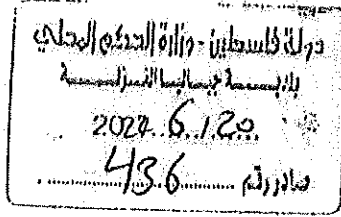 دولة فلسطين - وزارة الحكم المحلي
بلدية جباليا النزلة
2024.6.1.20
صادر رقم 436